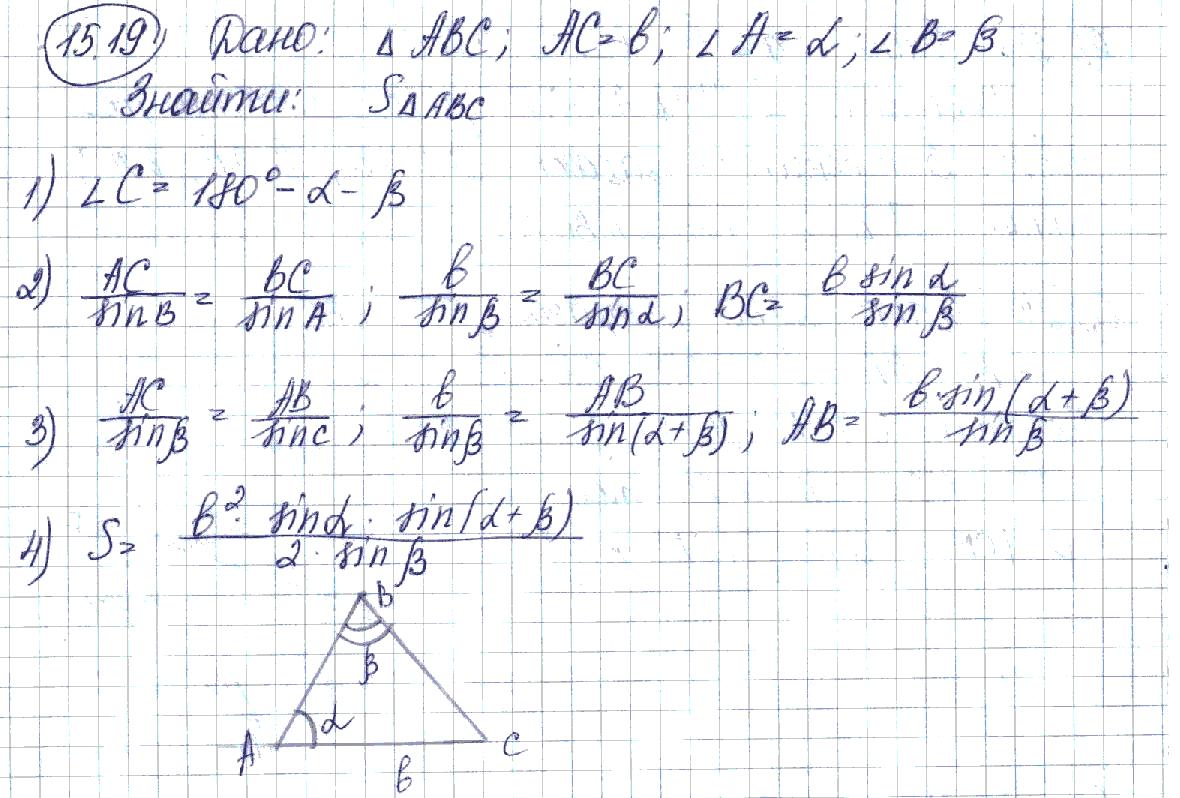 15.19) Дано: △ ABC; AC = b; ∠A = α; ∠B = β.
Знайти: S△ABC
1) ∠C = 180° - α - β
2) AC/sin B = BC/sin A; b/sin β = BC/sin α; BC = b sin α/sin β
3) AC/sin β = AB/sin C; b/sin β = AB/sin(α+β); AB = b·sin(α+β)/sin β
4) S = b²· sin α · sin(α+β)/2 · sin β
B
β
α
A
C
b